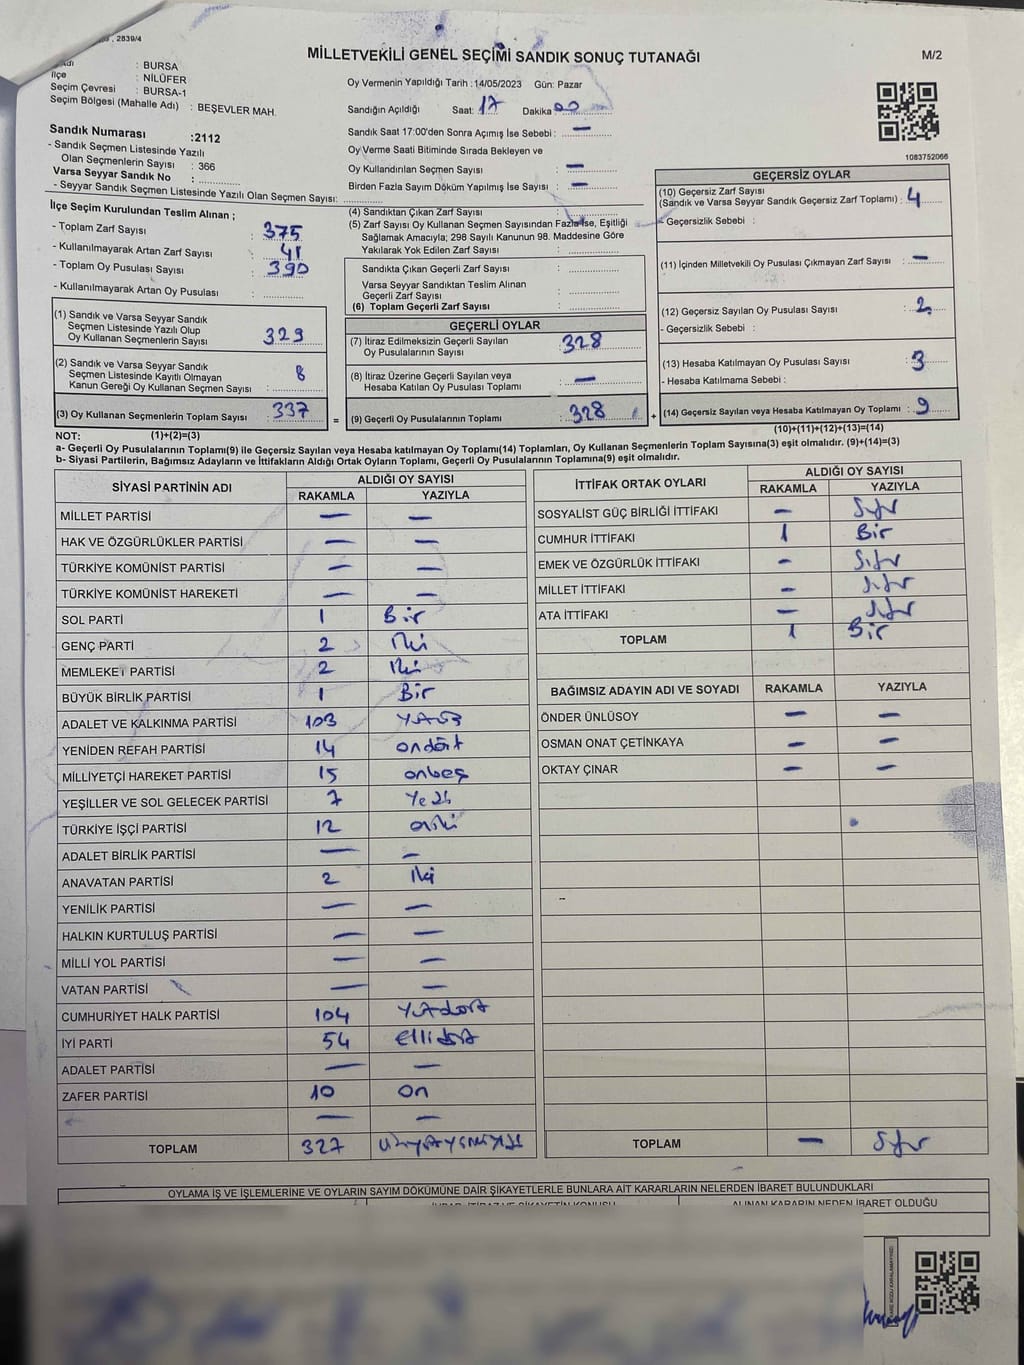 , 2839/4
MİLLETVEKİLİ GENEL SEÇİMİ SANDIK SONUÇ TUTANAĞI
M/2
: BURSA
İlçe : NİLÜFER
Seçim Çevresi : BURSA-1
Seçim Bölgesi (Mahalle Adı) : BEŞEVLER MAH.
Oy Vermenin Yapıldığı Tarih :14/05/2023 Gün: Pazar
Sandığın Açıldığı Saat: 17 Dakika 00
Sandık Saat 17:00'den Sonra Açımış İse Sebebi : —
Oy Verme Saati Bitiminde Sırada Bekleyen ve
Oy Kullandırılan Seçmen Sayısı —
Birden Fazla Sayım Döküm Yapılmış İse Sayısı —
1083752066
Sandık Numarası :2112
- Sandık Seçmen Listesinde Yazılı
Olan Seçmenlerin Sayısı : 366
Varsa Seyyar Sandık No :
- Seyyar Sandık Seçmen Listesinde Yazılı Olan Seçmen Sayısı:
İlçe Seçim Kurulundan Teslim Alınan ;
- Toplam Zarf Sayısı : 375
- Kullanılmayarak Artan Zarf Sayısı : 41
- Toplam Oy Pusulası Sayısı : 390
- Kullanılmayarak Artan Oy Pusulası :
(1) Sandık ve Varsa Seyyar Sandık
Seçmen Listesinde Yazılı Olup
Oy Kullanan Seçmenlerin Sayısı 329
(2) Sandık ve Varsa Seyyar Sandık
Seçmen Listesinde Kayıtlı Olmayan
Kanun Gereği Oy Kullanan Seçmen Sayısı : 8
(3) Oy Kullanan Seçmenlerin Toplam Sayısı : 337
(4) Sandıktan Çıkan Zarf Sayısı :
(5) Zarf Sayısı Oy Kullanan Seçmen Sayısından Fazla İse, Eşitliği
Sağlamak Amacıyla; 298 Sayılı Kanunun 98. Maddesine Göre
Yakılarak Yok Edilen Zarf Sayısı :
Sandıkta Çıkan Geçerli Zarf Sayısı :
Varsa Seyyar Sandıktan Teslim Alınan
Geçerli Zarf Sayısı :
(6) Toplam Geçerli Zarf Sayısı :
GEÇERLİ OYLAR
(7) İtiraz Edilmeksizin Geçerli Sayılan
Oy Pusulalarının Sayısı : 328
(8) İtiraz Üzerine Geçerli Sayılan veya
Hesaba Katılan Oy Pusulası Toplamı : —
= (9) Geçerli Oy Pusulalarının Toplamı : 328
GEÇERSİZ OYLAR
(10) Geçersiz Zarf Sayısı
(Sandık ve Varsa Seyyar Sandık Geçersiz Zarf Toplamı) : 4
- Geçersizlik Sebebi :
(11) İçinden Milletvekili Oy Pusulası Çıkmayan Zarf Sayısı : —
(12) Geçersiz Sayılan Oy Pusulası Sayısı : 2
- Geçersizlik Sebebi :
(13) Hesaba Katılmayan Oy Pusulası Sayısı : 3
- Hesaba Katılmama Sebebi :
+ (14) Geçersiz Sayılan veya Hesaba Katılmayan Oy Toplamı : 9
NOT: (1)+(2)=(3)
(10)+(11)+(12)+(13)=(14)
a- Geçerli Oy Pusulalarının Toplamı(9) ile Geçersiz Sayılan veya Hesaba katılmayan Oy Toplamı(14) Toplamları, Oy Kullanan Seçmenlerin Toplam Sayısına(3) eşit olmalıdır. (9)+(14)=(3)
b- Siyasi Partilerin, Bağımsız Adayların ve İttifakların Aldığı Ortak Oyların Toplamı, Geçerli Oy Pusulalarının Toplamına(9) eşit olmalıdır.
SİYASİ PARTİNİN ADI ALDIĞI OY SAYISI
RAKAMLA YAZIYLA
MİLLET PARTİSİ — —
HAK VE ÖZGÜRLÜKLER PARTİSİ — —
TÜRKİYE KOMÜNİST PARTİSİ — —
TÜRKİYE KOMÜNİST HAREKETİ — —
SOL PARTİ 1 Bir
GENÇ PARTİ 2 İki
MEMLEKET PARTİSİ 2 İki
BÜYÜK BİRLİK PARTİSİ 1 Bir
ADALET VE KALKINMA PARTİSİ 103
YENİDEN REFAH PARTİSİ 14 ondört
MİLLİYETÇİ HAREKET PARTİSİ 15 onbeş
YEŞİLLER VE SOL GELECEK PARTİSİ 7 Yedi
TÜRKİYE İŞÇİ PARTİSİ 12 oniki
ADALET BİRLİK PARTİSİ — —
ANAVATAN PARTİSİ 2 İki
YENİLİK PARTİSİ — —
HALKIN KURTULUŞ PARTİSİ — —
MİLLİ YOL PARTİSİ — —
VATAN PARTİSİ — —
CUMHURİYET HALK PARTİSİ 104
İYİ PARTİ 54 Ellidört
ADALET PARTİSİ — —
ZAFER PARTİSİ 10 On
— —
TOPLAM 327
İTTİFAK ORTAK OYLARI ALDIĞI OY SAYISI
RAKAMLA YAZIYLA
SOSYALİST GÜÇ BİRLİĞİ İTTİFAKI — Sıfır
CUMHUR İTTİFAKI 1 Bir
EMEK VE ÖZGÜRLÜK İTTİFAKI — Sıfır
MİLLET İTTİFAKI — Sıfır
ATA İTTİFAKI — Sıfır
TOPLAM 1 Bir
BAĞIMSIZ ADAYIN ADI VE SOYADI RAKAMLA YAZIYLA
ÖNDER ÜNLÜSOY — —
OSMAN ONAT ÇETİNKAYA — —
OKTAY ÇINAR — —
TOPLAM — Sıfır
OYLAMA İŞ VE İŞLEMLERİNE VE OYLARIN SAYIM DÖKÜMÜNE DAİR ŞİKAYETLERLE BUNLARA AİT KARARLARIN NELERDEN İBARET BULUNDUKLARI
ALINAN KARARIN NEDEN İBARET OLDUĞU